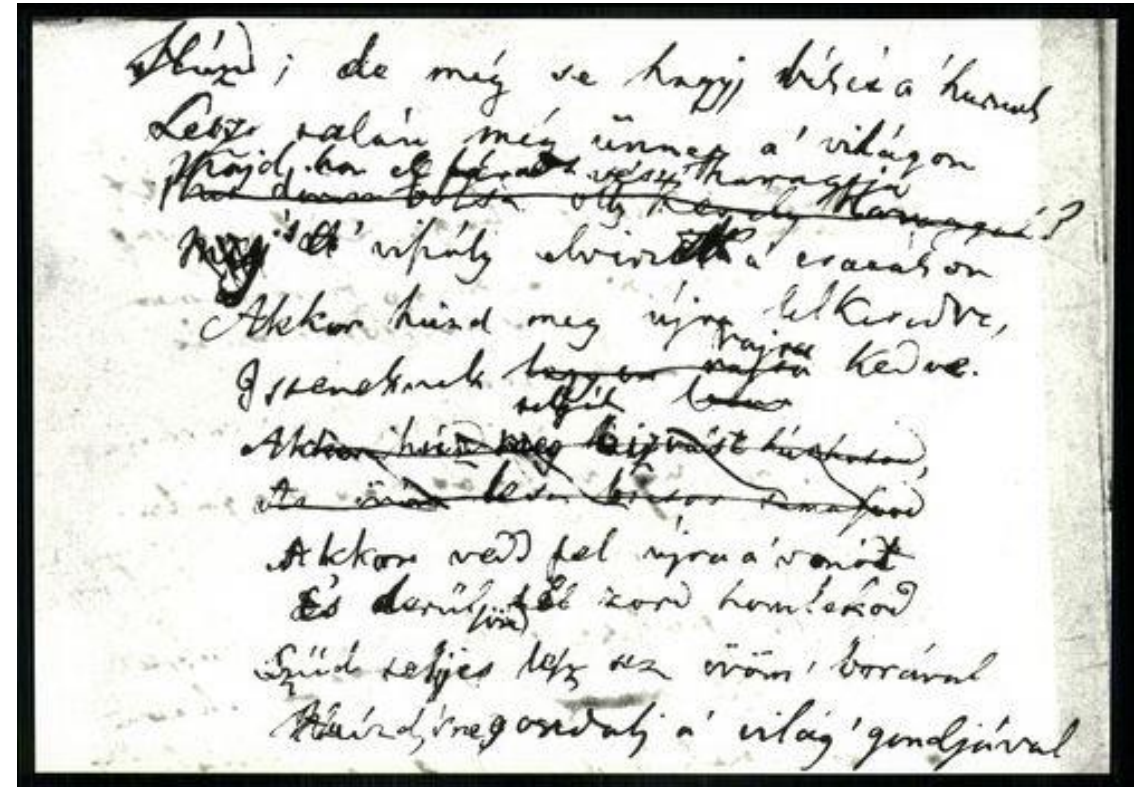 Húzd; de még se hagyj békét a' húrnak
Lesz talán még ünnep a' világon
Majd, ha el fárad vész haragja
olly
's a' viszály elvérzik a' csatákon
Akkor húzd meg újra lelkesedve,
Isteneknek legyen rajta kedve.
teljék
Akkor húzd meg bizvást
öröm lesz
Akkor vedd fel újra a' vonót
És derüljön fel zord homlokod
Szűd teljes lesz az öröm' borával
Húzd, 's ne gondolj a' világ' gondjával